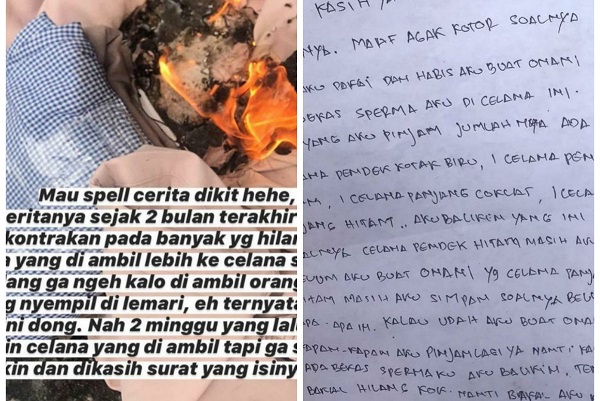 Mau spell cerita dikit hehe,
eritanya sejak 2 bulan terakhir
kontrakan pada banyak yg hilan
yang di ambil lebih ke celana s
ang ga ngeh kalo di ambil orang
g nyempil di lemari, eh ternyata
ni dong. Nah 2 minggu yang lal
in celana yang di ambil tapi ga s
kin dan dikasih surat yang isiny
KASIH
NYA. MAAF AGAK KOTOR SOALNYA
AKU PAKAI DAN HABIS AKU BUAT ONANI
BEKAS SPERMA AKU DI CELANA INI.
YANG AKU PINJAM JUMLAH NYA ADA
ANA PENDEK KOTAK BIRU, 1 CELANA PEN
M, 1 CELANA PANJANG COKLAT, 1 CELA
JANG HITAM.. AKU BALIKIN YANG INI
ALNYA CELANA PENDEK HITAM MASIH AKU
LUM AKU BUAT ONANI YG CELANA PANJ
ITAM MASIH AKU SIMPAN SOALNYA BELU
PA-APA IH. KALAU UDAH AKU BUAT ONA
KAPAN-KAPAN AKU PINJAM LAGI YA NANTI. KA
ADA BEKAS SPERMA KU AKU BALIKIN, TE
BAKAL HILANG KOK. NANTI BAKAL AKU